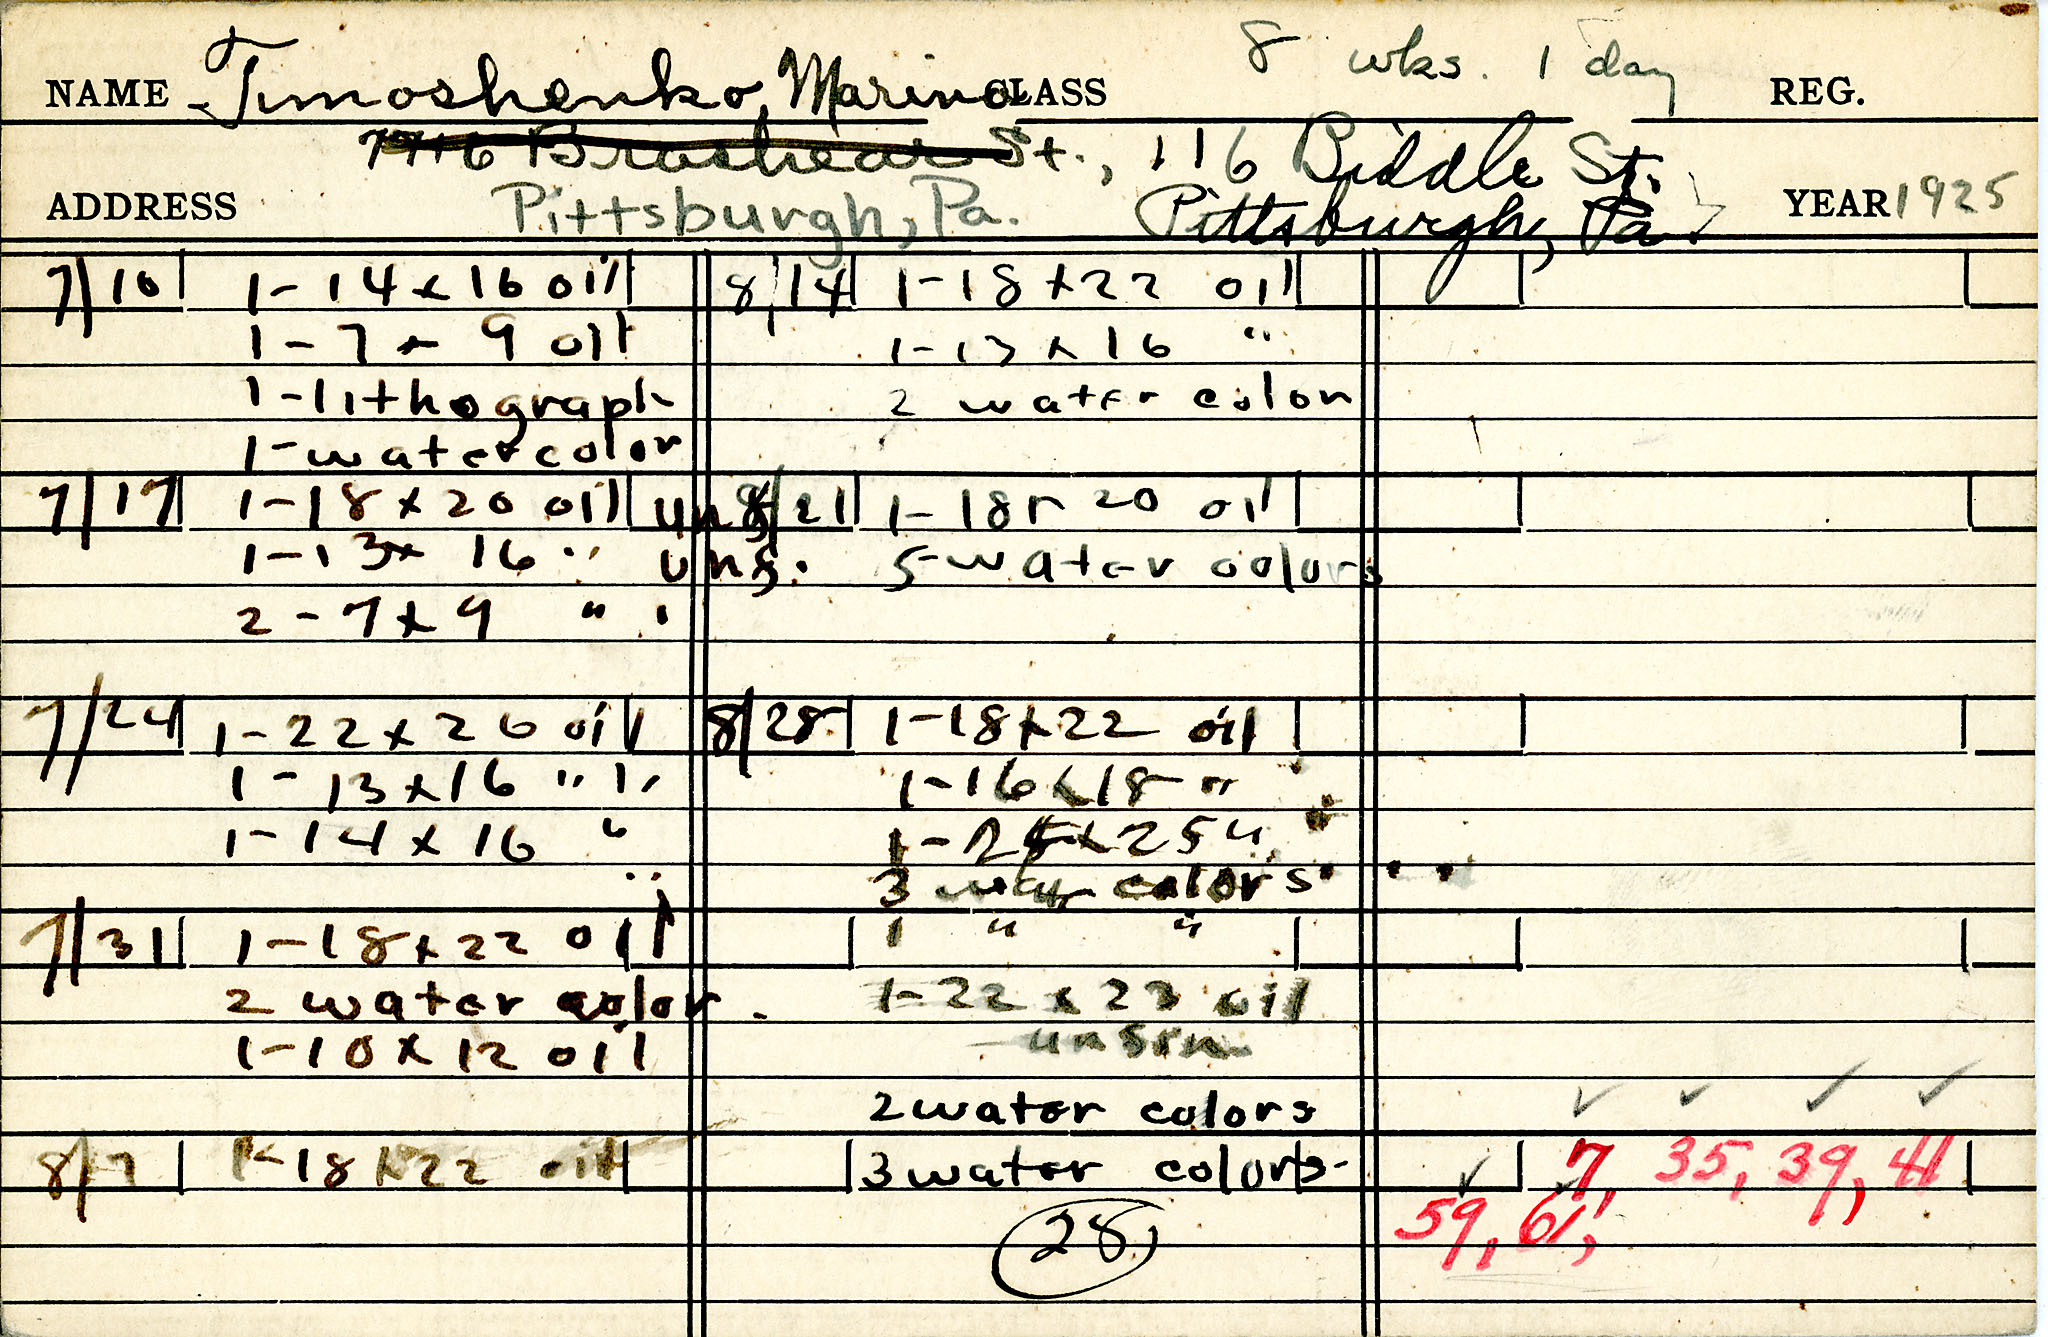 8 wks. 1 day
NAME Timoshenko, Marina CLASS REG.
7716 Brashear St., 116 Biddle St.
ADDRESS Pittsburgh, Pa. Pittsburgh, Pa. YEAR 1925
7/10 1-14x16 oil
1-7x9 oil
1-lithograph
1-watercolor
7/17 1-18x20 oil uns.
1-13x16 " uns.
2-7x9 "
7/24 1-22x26 oil
1-13x16 "
1-14x16 "
7/31 1-18x22 oil
2 water color
1-10x12 oil
8/7 1-18x22 oil
8/14 1-18x22 oil
1-13x16 "
2 water color
8/21 1-18x20 oil
5-water colors
8/28 1-18x22 oil
1-16x18 "
1- x25 "
3 colors
1 " "
1-22x23 oil
2 water colors
3 water colors
28
7, 35, 39, 41
59, 61,